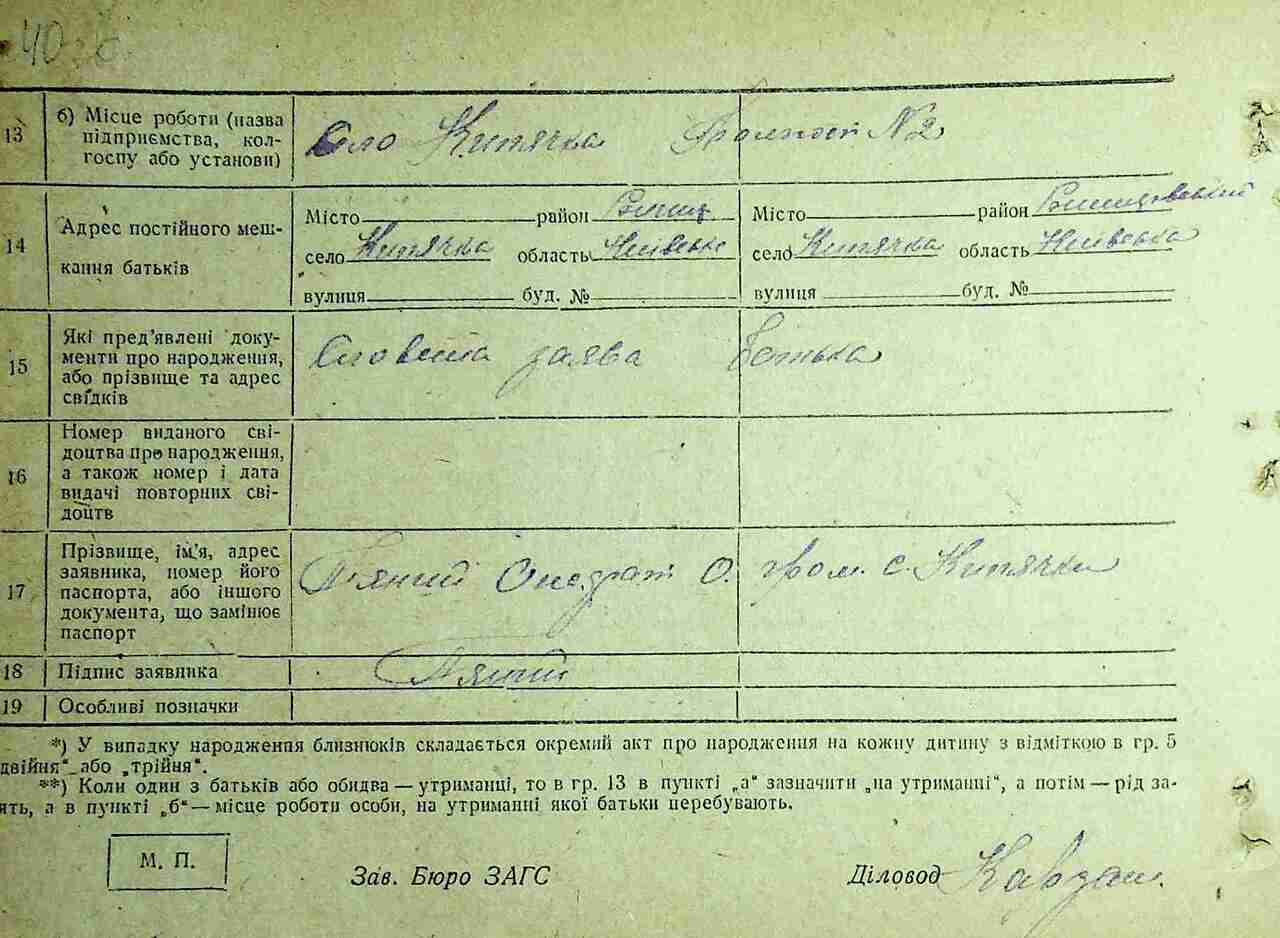 40
13 б) Місце роботи (назва підприємства, колгоспу або установи) село Кипячка № 2
14 Адрес постійного мешкання батьків
Місто район
село Кипячка область Київська
вулиця буд. №
Місто район
село Кипячка область Київська
вулиця буд. №
15 Які пред'явлені документи про народження, або прізвище та адрес свідків Словесна заява батька
16 Номер виданого свідоцтва про народження, а також номер і дата видачі повторних свідоцтв
17 Прізвище, ім'я, адрес заявника, номер його паспорта, або іншого документа, що замінює паспорт П'яний О. гром. с. Кипячки
18 Підпис заявника П'яний
19 Особливі позначки
*) У випадку народження близнюків складається окремий акт про народження на кожну дитину з відміткою в гр. 5
двійня" або „трійня".
**) Коли один з батьків або обидва — утриманці, то в гр. 13 в пункті „а" зазначити „на утриманні", а потім — рід за-
ять, а в пункті „б" — місце роботи особи, на утриманні якої батьки перебувають.
М. П.
Зав. Бюро ЗАГС
Діловод